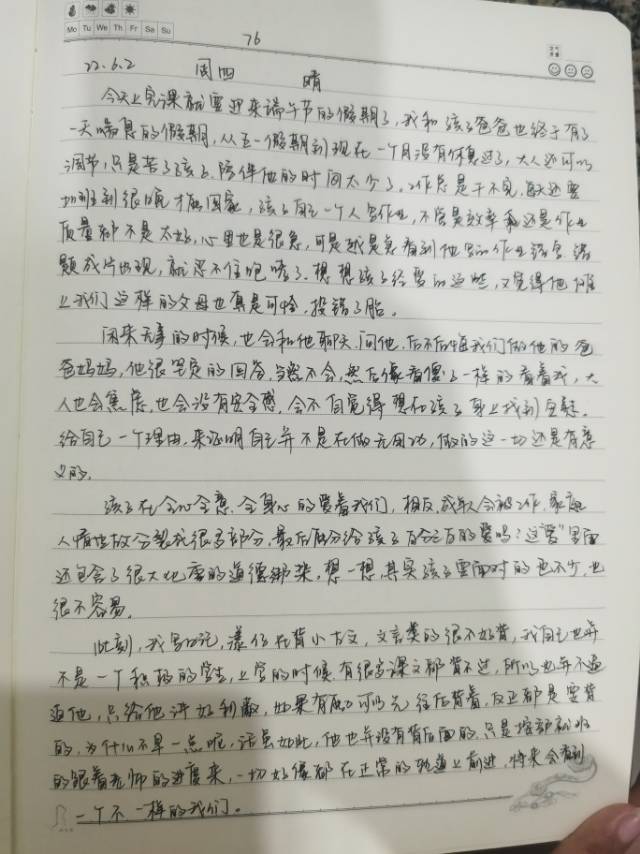 Mo Tu We Th Fr Sa Su
76
22.6.2 周四 晴
今天上完课就要迎来端午节的假期了,我和孩子爸爸也终于有了
一天喘息的假期,从五一假期到现在一个月没有休息过了,大人还可以
调节,只是苦了孩子,陪伴他的时间太少了,工作总是干不完,每天还要
加班到很晚才能回家,孩子自己一个人写作业,不管是效率和还是作业
质量都不是太好,心里也是很急,可是越是急看到他写的作业错字错
题成片出现,就忍不住咆哮了。想想孩子经受的这些,又觉得他摊
上我们这样的父母也真是可怜,投错了胎。
闲来无事的时候,也会和他聊天,问他,后不后悔我们做他的爸
爸妈妈,他很坚定的回答,当然不会,然后像看傻子一样的看着我,大
人也会焦虑,也会没有安全感,会不自觉得想和孩子身上找到
给自己一个理由,来证明自己并不是在做无用功,做的这一切还是有意
义的。
孩子在全心全意,全身心的爱着我们,相反,成年人会被工作,家庭
人情世故分裂成很多部分,最后留分给孩子百分之百的爱吗?这"爱"里面
还包含了很大比重的道德绑架,想一想,其实孩子要面对的也不少,也
很不容易。
此刻,我写日记,漾仔在背小古文,文言类的很不好背,我自己也并
不是一个积极的学生,上学的时候有很多课文都背不过,所以也并不逼
迫他,只给他讲好利弊,如果有能力可以先往后背着,反正都是要背
的,为什么不早一点呢,话虽如此,他也并没有背后面的,只是按部就班
的跟着老师的进度来,一切好像都在正常的轨道上前进,将来会看到
一个不一样的我们。